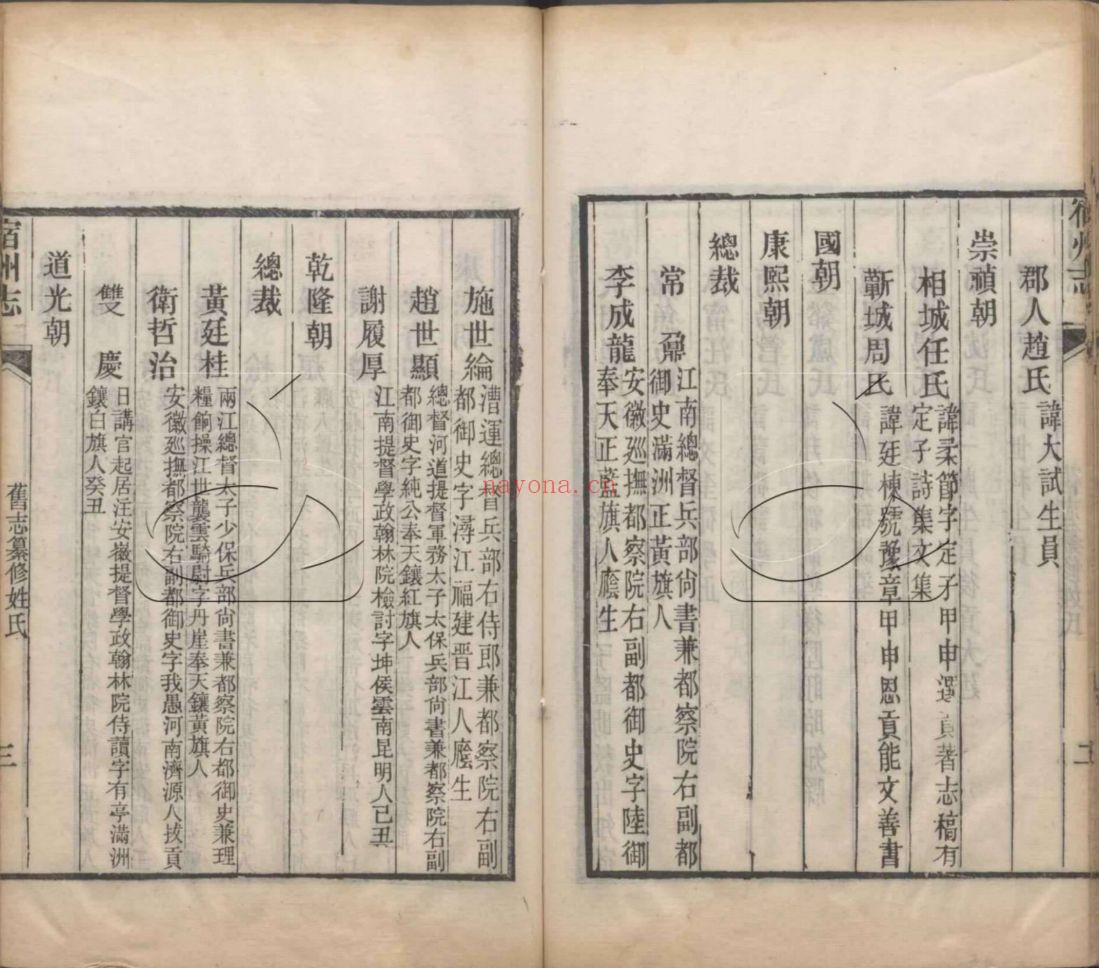 宿州志
郡人趙氏 諱大試生員
崇禎朝
相城任氏 諱柔節字定子甲申選貢著志稿有
定子詩集文集
蘄城周氏 諱廷棟號豫章甲申恩貢能文善書
國朝
康熙朝
總裁
常鼐 江南總督兵部尙書兼都察院右副都
御史滿洲正黃旗人
李成龍 安徽廵撫都察院右副都御史字陸御
奉天正藍旗人廕生
施世綸 漕運總督兵部右侍郎兼都察院右副
都御史字潯江福建晋江人廕生
趙世顯 總督河道提督軍務太子太保兵部尙書兼都察院右副
都御史字純公奉天鑲紅旗人
謝履厚 江南提督學政翰林院檢討字坤侯雲南昆明人己丑
乾隆朝
總裁
黃廷桂 兩江總督太子少保兵部尙書兼都察院右都御史兼理
糧餉操江世襲雲騎尉字丹崖奉天鑲黃旗人
衛哲治 安徽廵撫都察院右副都御史字我愚河南濟源人拔貢
雙慶 日講官起居注安徽提督學政翰林院侍讀字有亭滿洲
鑲白旗人癸丑
道光朝
宿州志
舊志纂修姓氏
三
nayona.cn